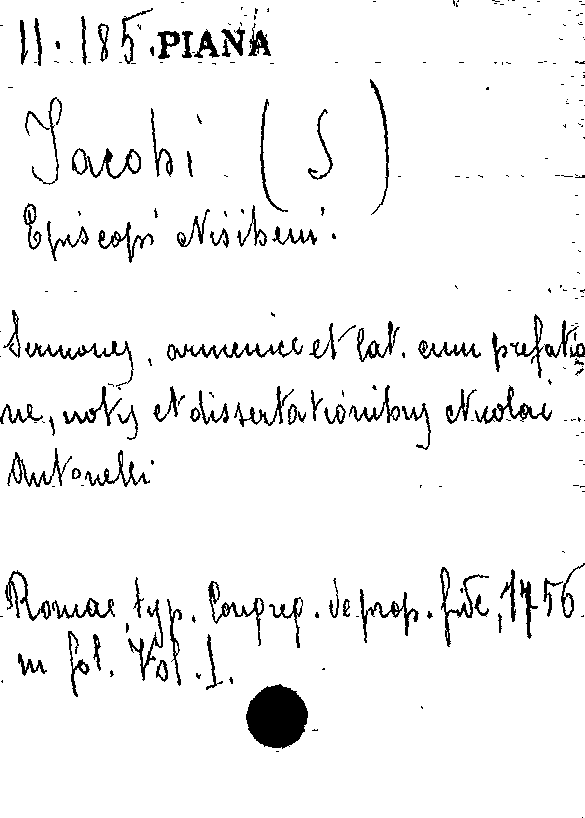 11.185.PIANA
Jacobi (S)
Episcopi Nisibeni.
Sermones, armenice et lat. cum prefatio
ne, notis et dissertationibus Nicolai
Antonelli
Romae, typ. Congreg. de prop. fide, 1756
in fol. Vol. 1.